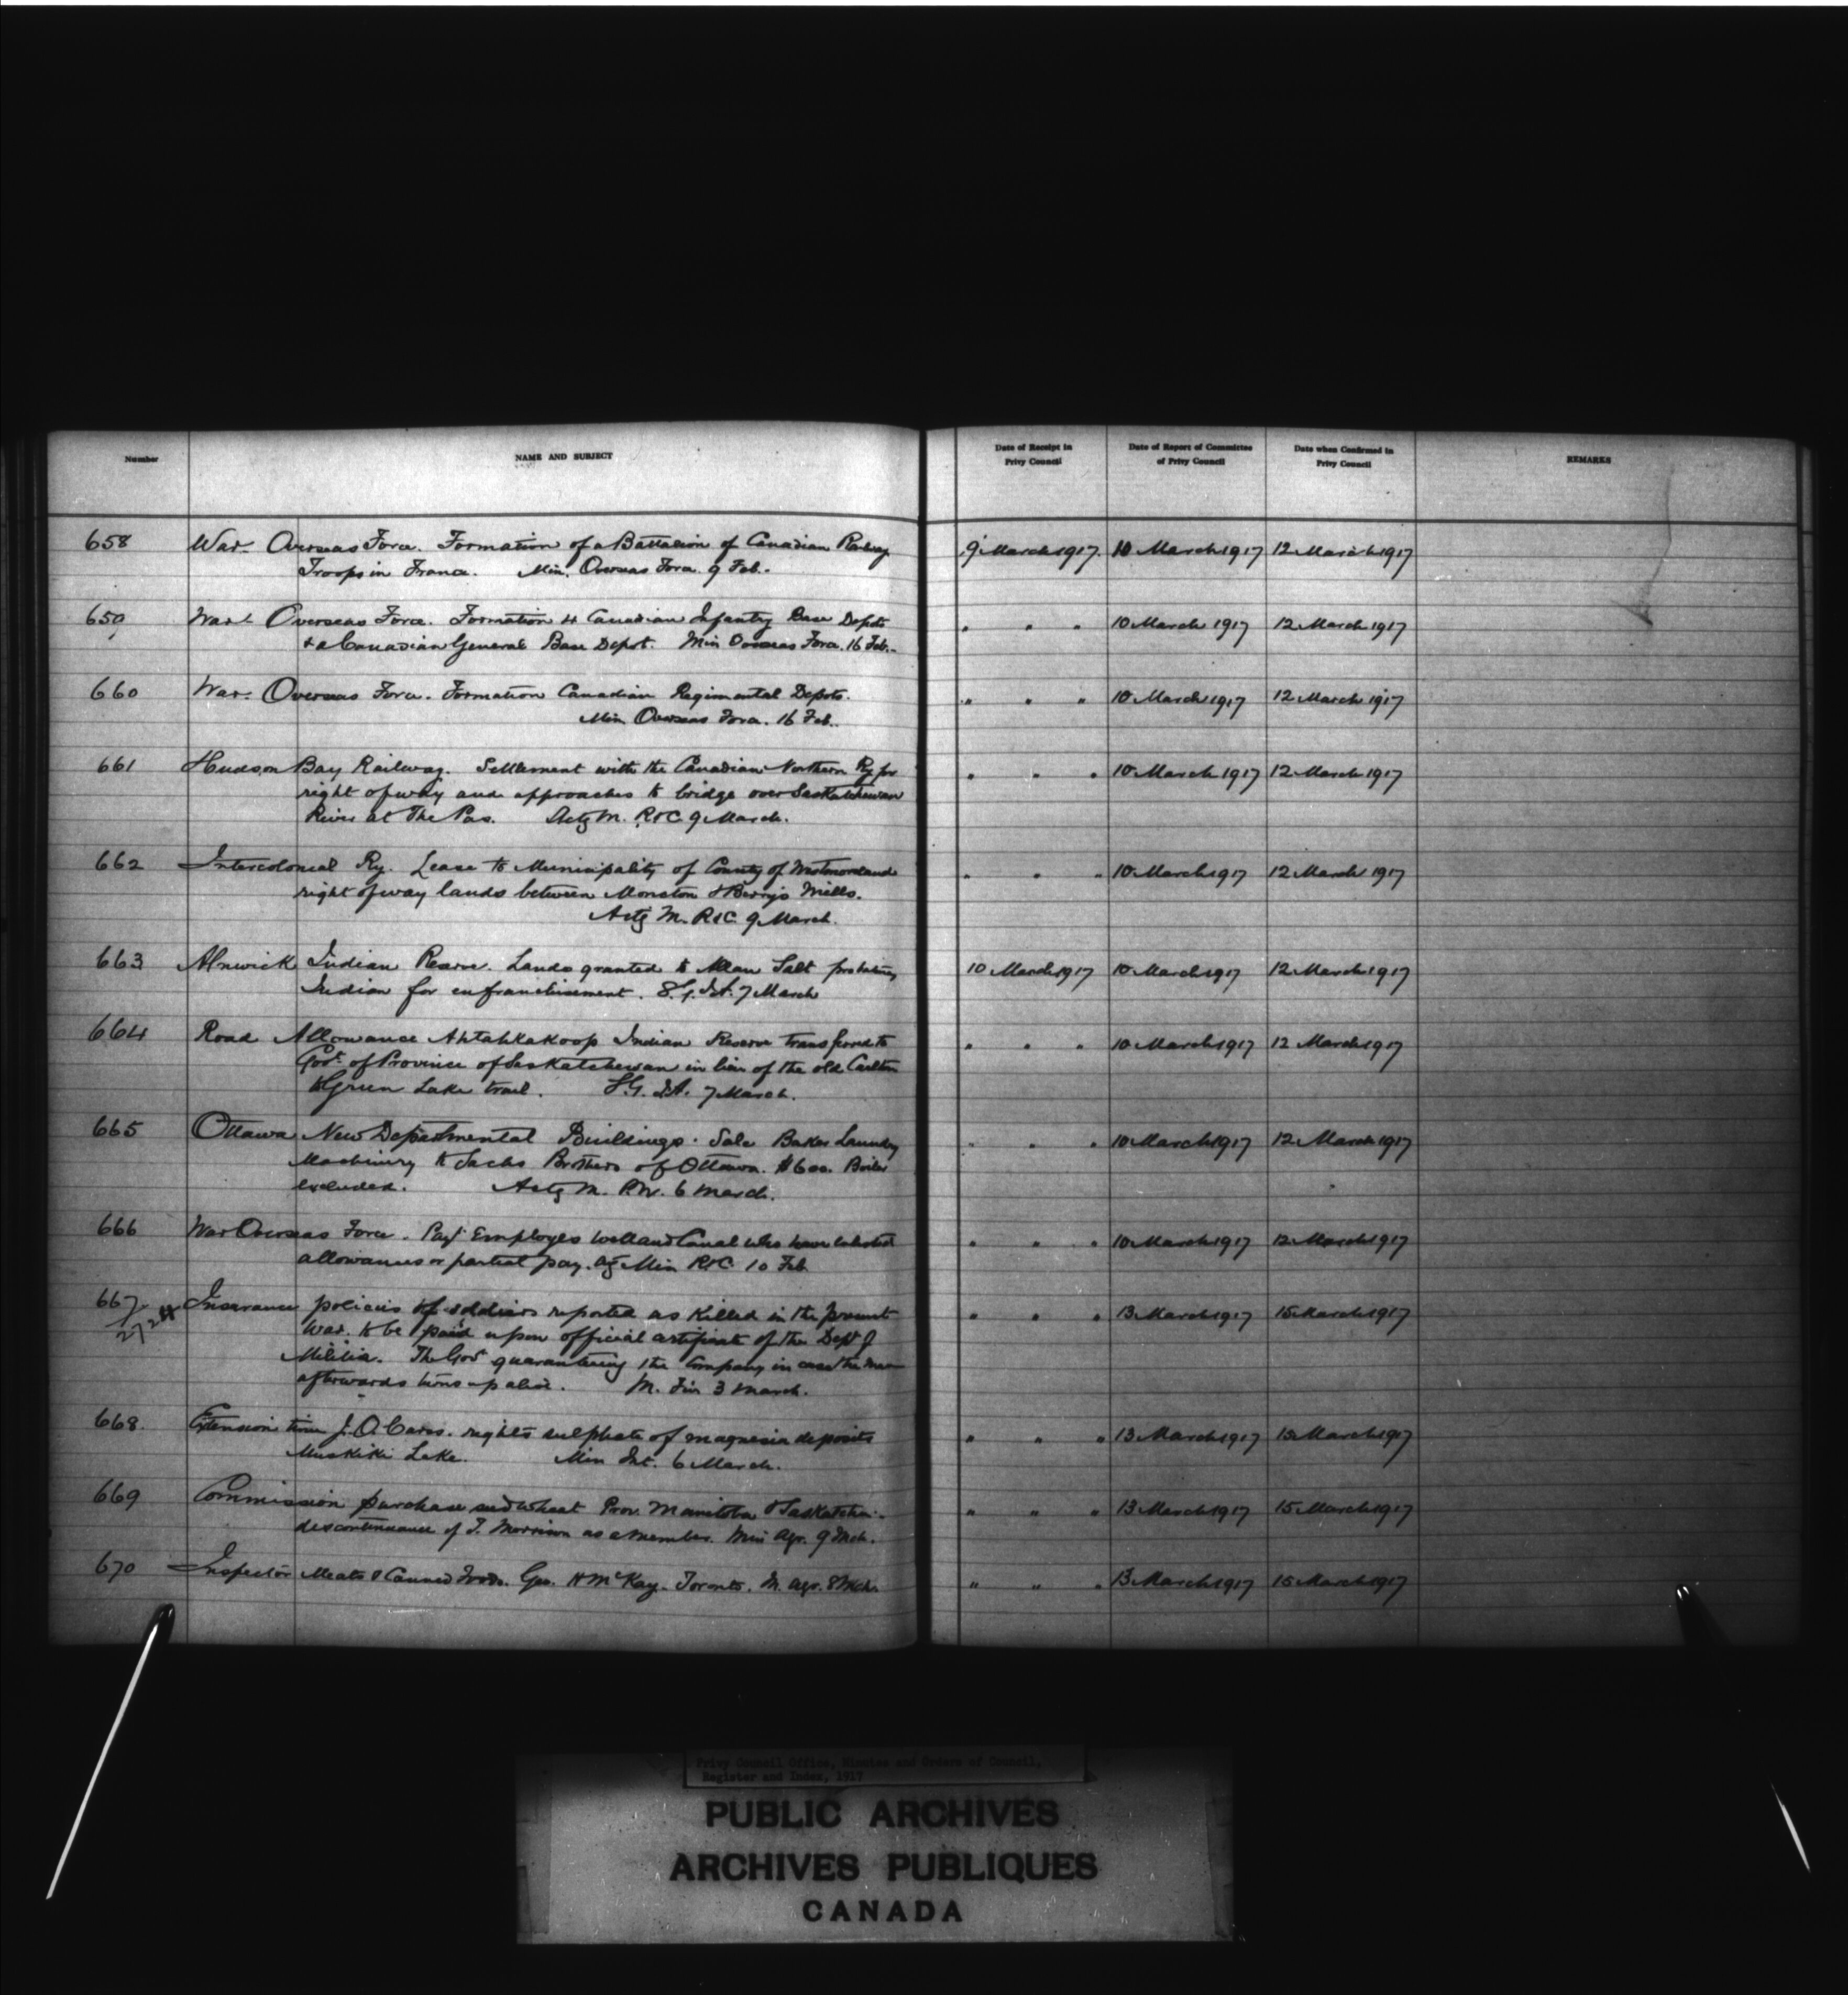 Number
NAME AND SUBJECT
Date of Receipt in
Privy Council
Date of Report of Committee
of Privy Council
Date when Confirmed in
Privy Council
REMARKS
658 War. Overseas Force. Formation of a Battalion of Canadian Railway 9 March 1917. 10 March 1917 12 March 1917
Troops in France. Min. Overseas Force 9 Feb.
659 War. Overseas Force. Formation 4 Canadian Infantry Base Depots " " " 10 March 1917 12 March 1917
& a Canadian General Base Depot. Min Overseas Force. 16 Feb.
660 War. Overseas Force. Formation Canadian Regimental Depots. " " " 10 March 1917 12 March 1917
Min Overseas Force. 16 Feb.
661 Hudson Bay Railway. Settlement with the Canadian Northern Ry for " " " 10 March 1917 12 March 1917
right of way and approaches to bridge over Saskatchewan
River at The Pas. Actg M. R&C 9 March.
662 Intercolonial Ry. Lease to Municipality of County of Westmorland " " " 10 March 1917 12 March 1917
right of way lands between Moncton & Berry's Mills.
Actg M. R&C 9 March.
663 Alnwick Indian Reserve. Lands granted to Allan Salt probationary 10 March 1917 10 March 1917 12 March 1917
Indian for enfranchisement. S.G.I.A. 7 March
664 Road Allowance Ahtahkakoop Indian Reserve transferred to " " " 10 March 1917 12 March 1917
Govt. of Province of Saskatchewan in lieu of the old Carlton
to Green Lake trail. S.G. I.A. 7 March.
665 Ottawa New Departmental Buildings. Sale Baker Laundry " " 10 March 1917 12 March 1917
Machinery to Sachs Brothers of Ottawa. $600. Boiler
excluded. Actg M. P.W. 6 March.
666 War Overseas Force. Payt Employes Welland Canal who have enlisted " " " 10 March 1917 12 March 1917
allowances or partial pay. Ag Min R&C 10 Feb
667 Insurance policies of soldiers reported as killed in the present " " " 13 March 1917 15 March 1917
2724
War. to be paid upon official certificate of the Dept of
Militia. The Govt guaranteeing the Company in case the man
afterwards turns up alive. M. Fin 3 March.
668. Extension time J.O. Carss. rights sulphate of magnesia deposits " " " 13 March 1917 15 March 1917
Muskiki Lake. Min Int. 6 March.
669 Commission purchase seed wheat Prov. Manitoba & Saskatchn. " " " 13 March 1917 15 March 1917
discontinuance of T. Morrison as a member. Min Agr. 9 Mch.
670 Inspector Meats & Canned Foods. Geo. H McKay. Toronto. M. Agr. 8 Mch. " " " 13 March 1917 15 March 1917
Privy Council Office, Minutes and Orders of Council,
Register and Index, 1917
PUBLIC ARCHIVES
ARCHIVES PUBLIQUES
CANADA